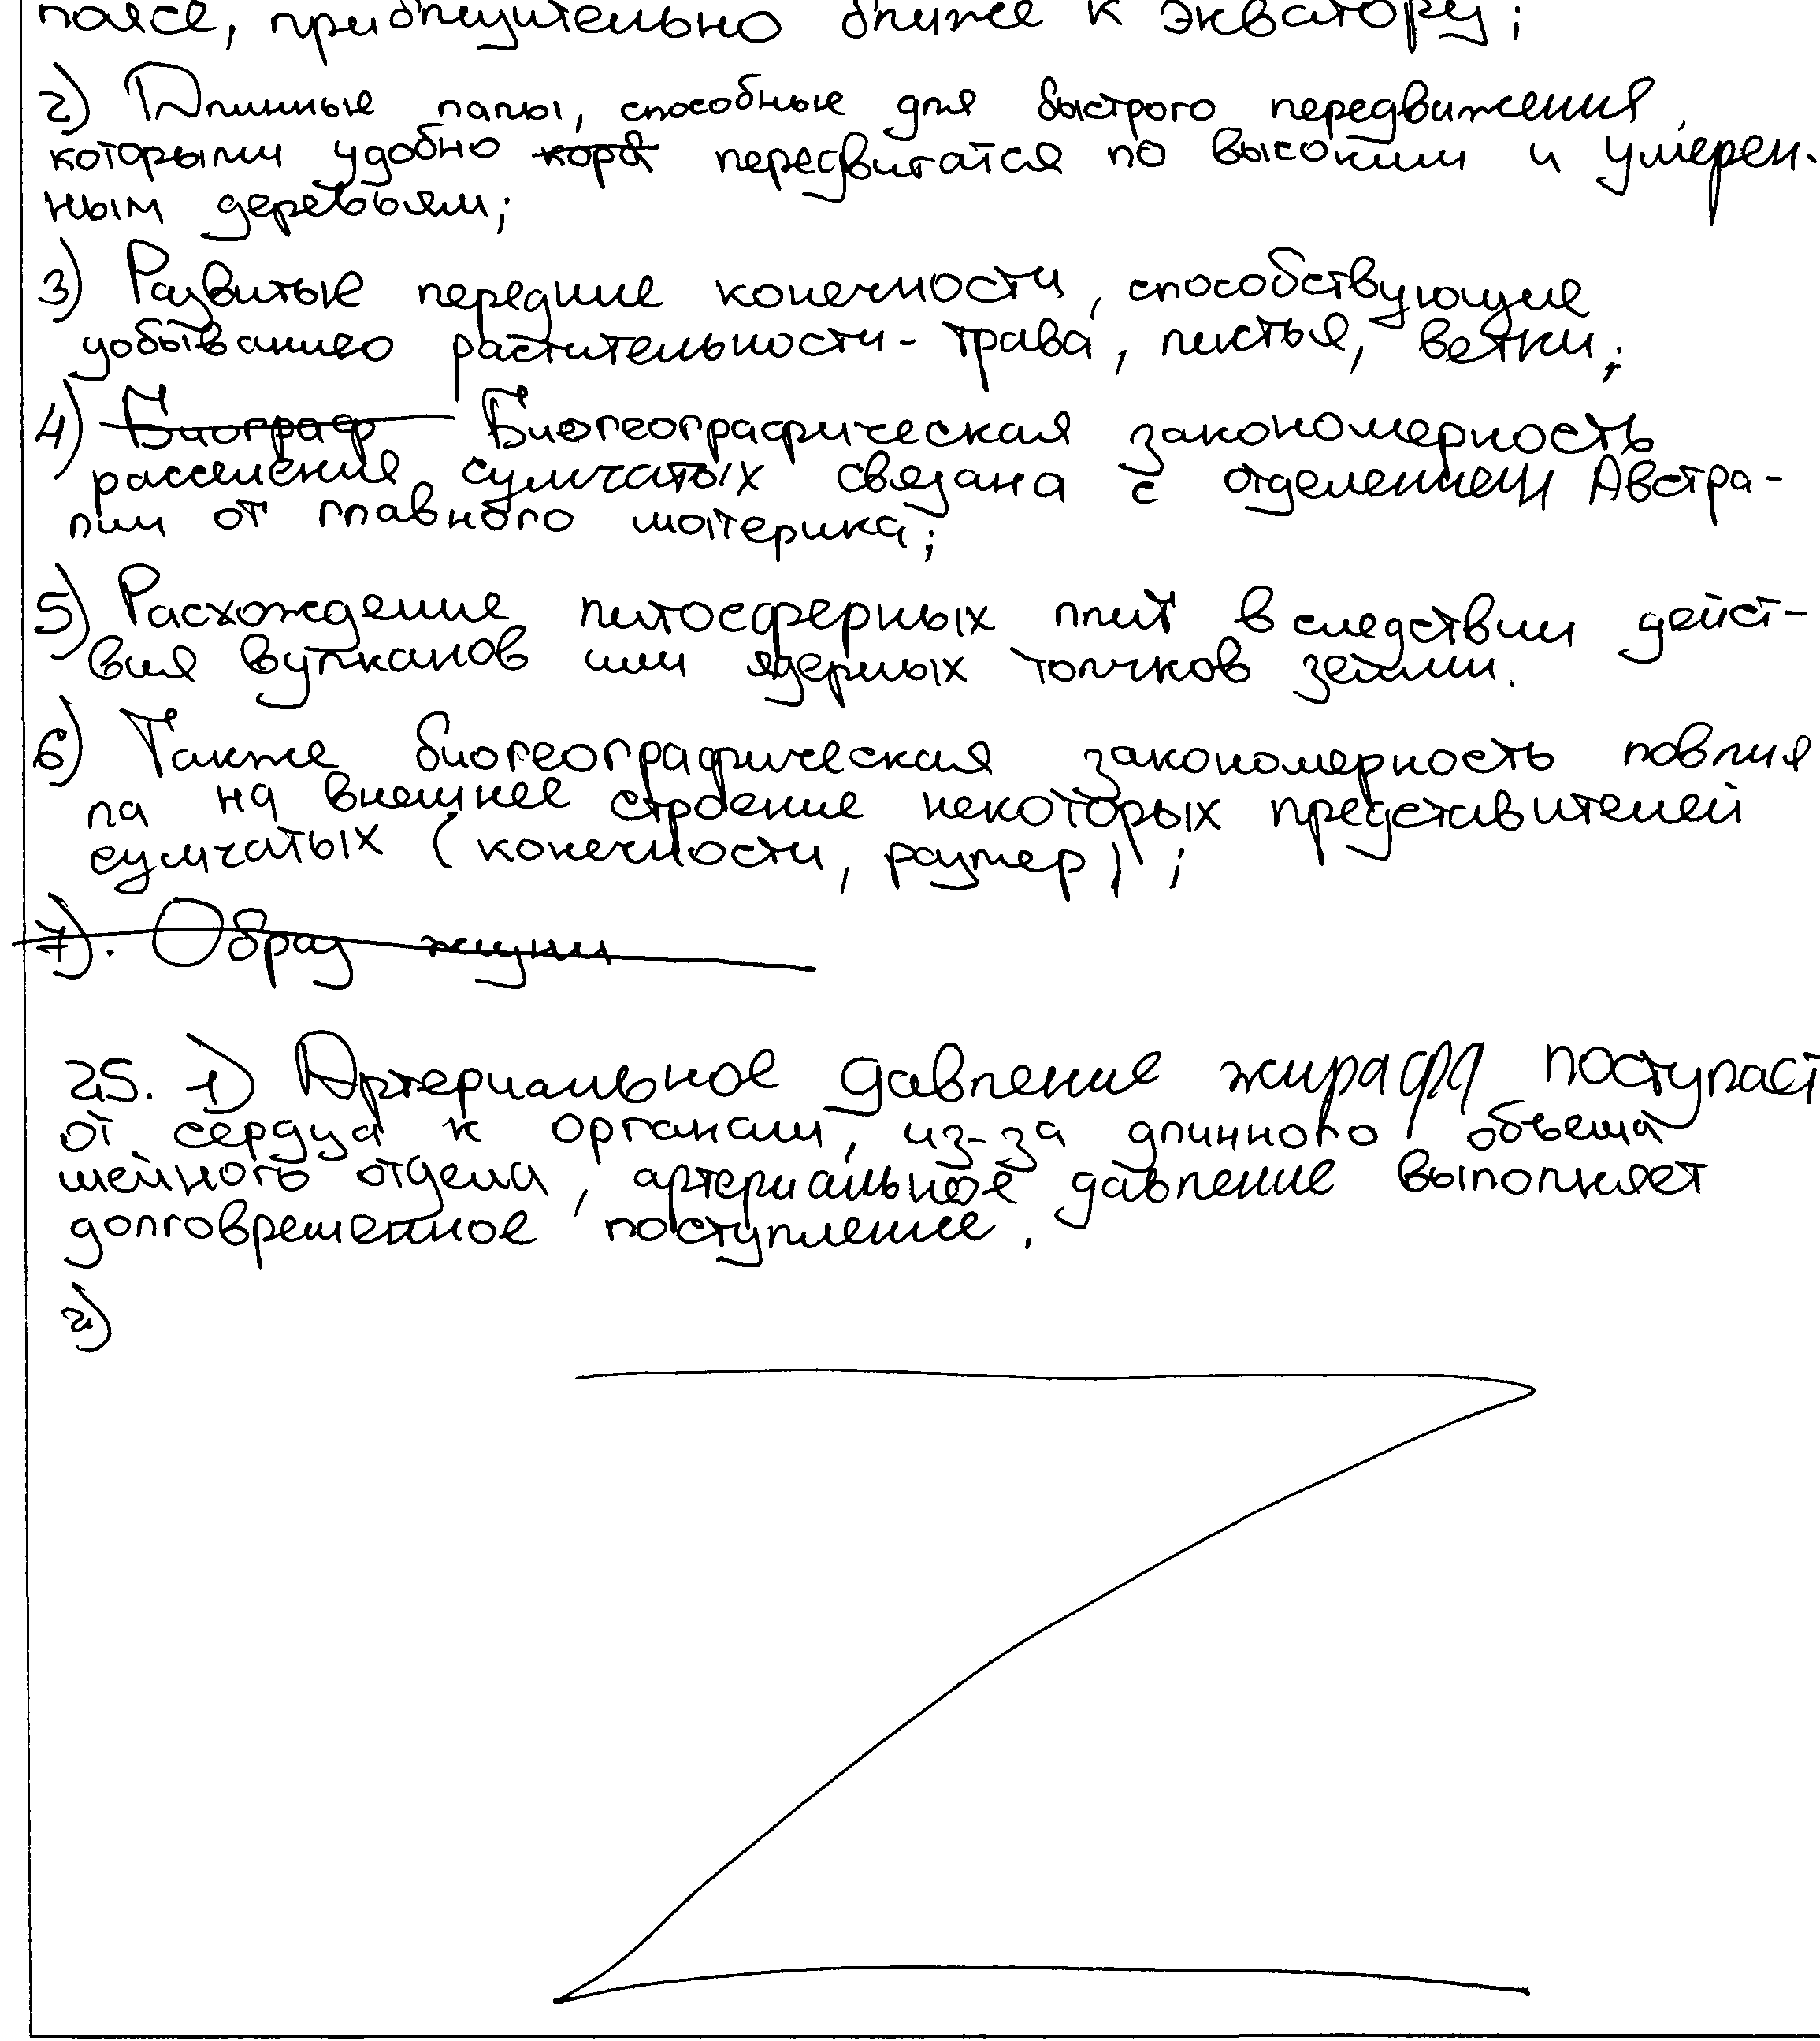 поясе, приблизительно ближе к экватору;
2) Длинные лапы, способные для быстрого передвижения,
которыми удобно кора передвигатся по высоким и умерен-
ным деревьям;
3) Развитые передние конечности, способствующие
добыванию растительности - трава, листья, ветки;
4) Биограф Биогеографическая закономерность
расселения сумчатых связана с отделением Австра-
лии от главного материка;
5) Расхождение литосферных плит вследствии дейст-
вия вулканов или ядерных толчков земли.
6) Также биогеографическая закономерность повлия
ла на внешнее строение некоторых представителей
сумчатых (конечности, размер);
7). Образ жизни
25. 1) Артериальное давление жирафа поступает
от сердца к органам, из-за длинного объема
шейного отдела, артериальное давление выполняет
долговременное поступление.
2)